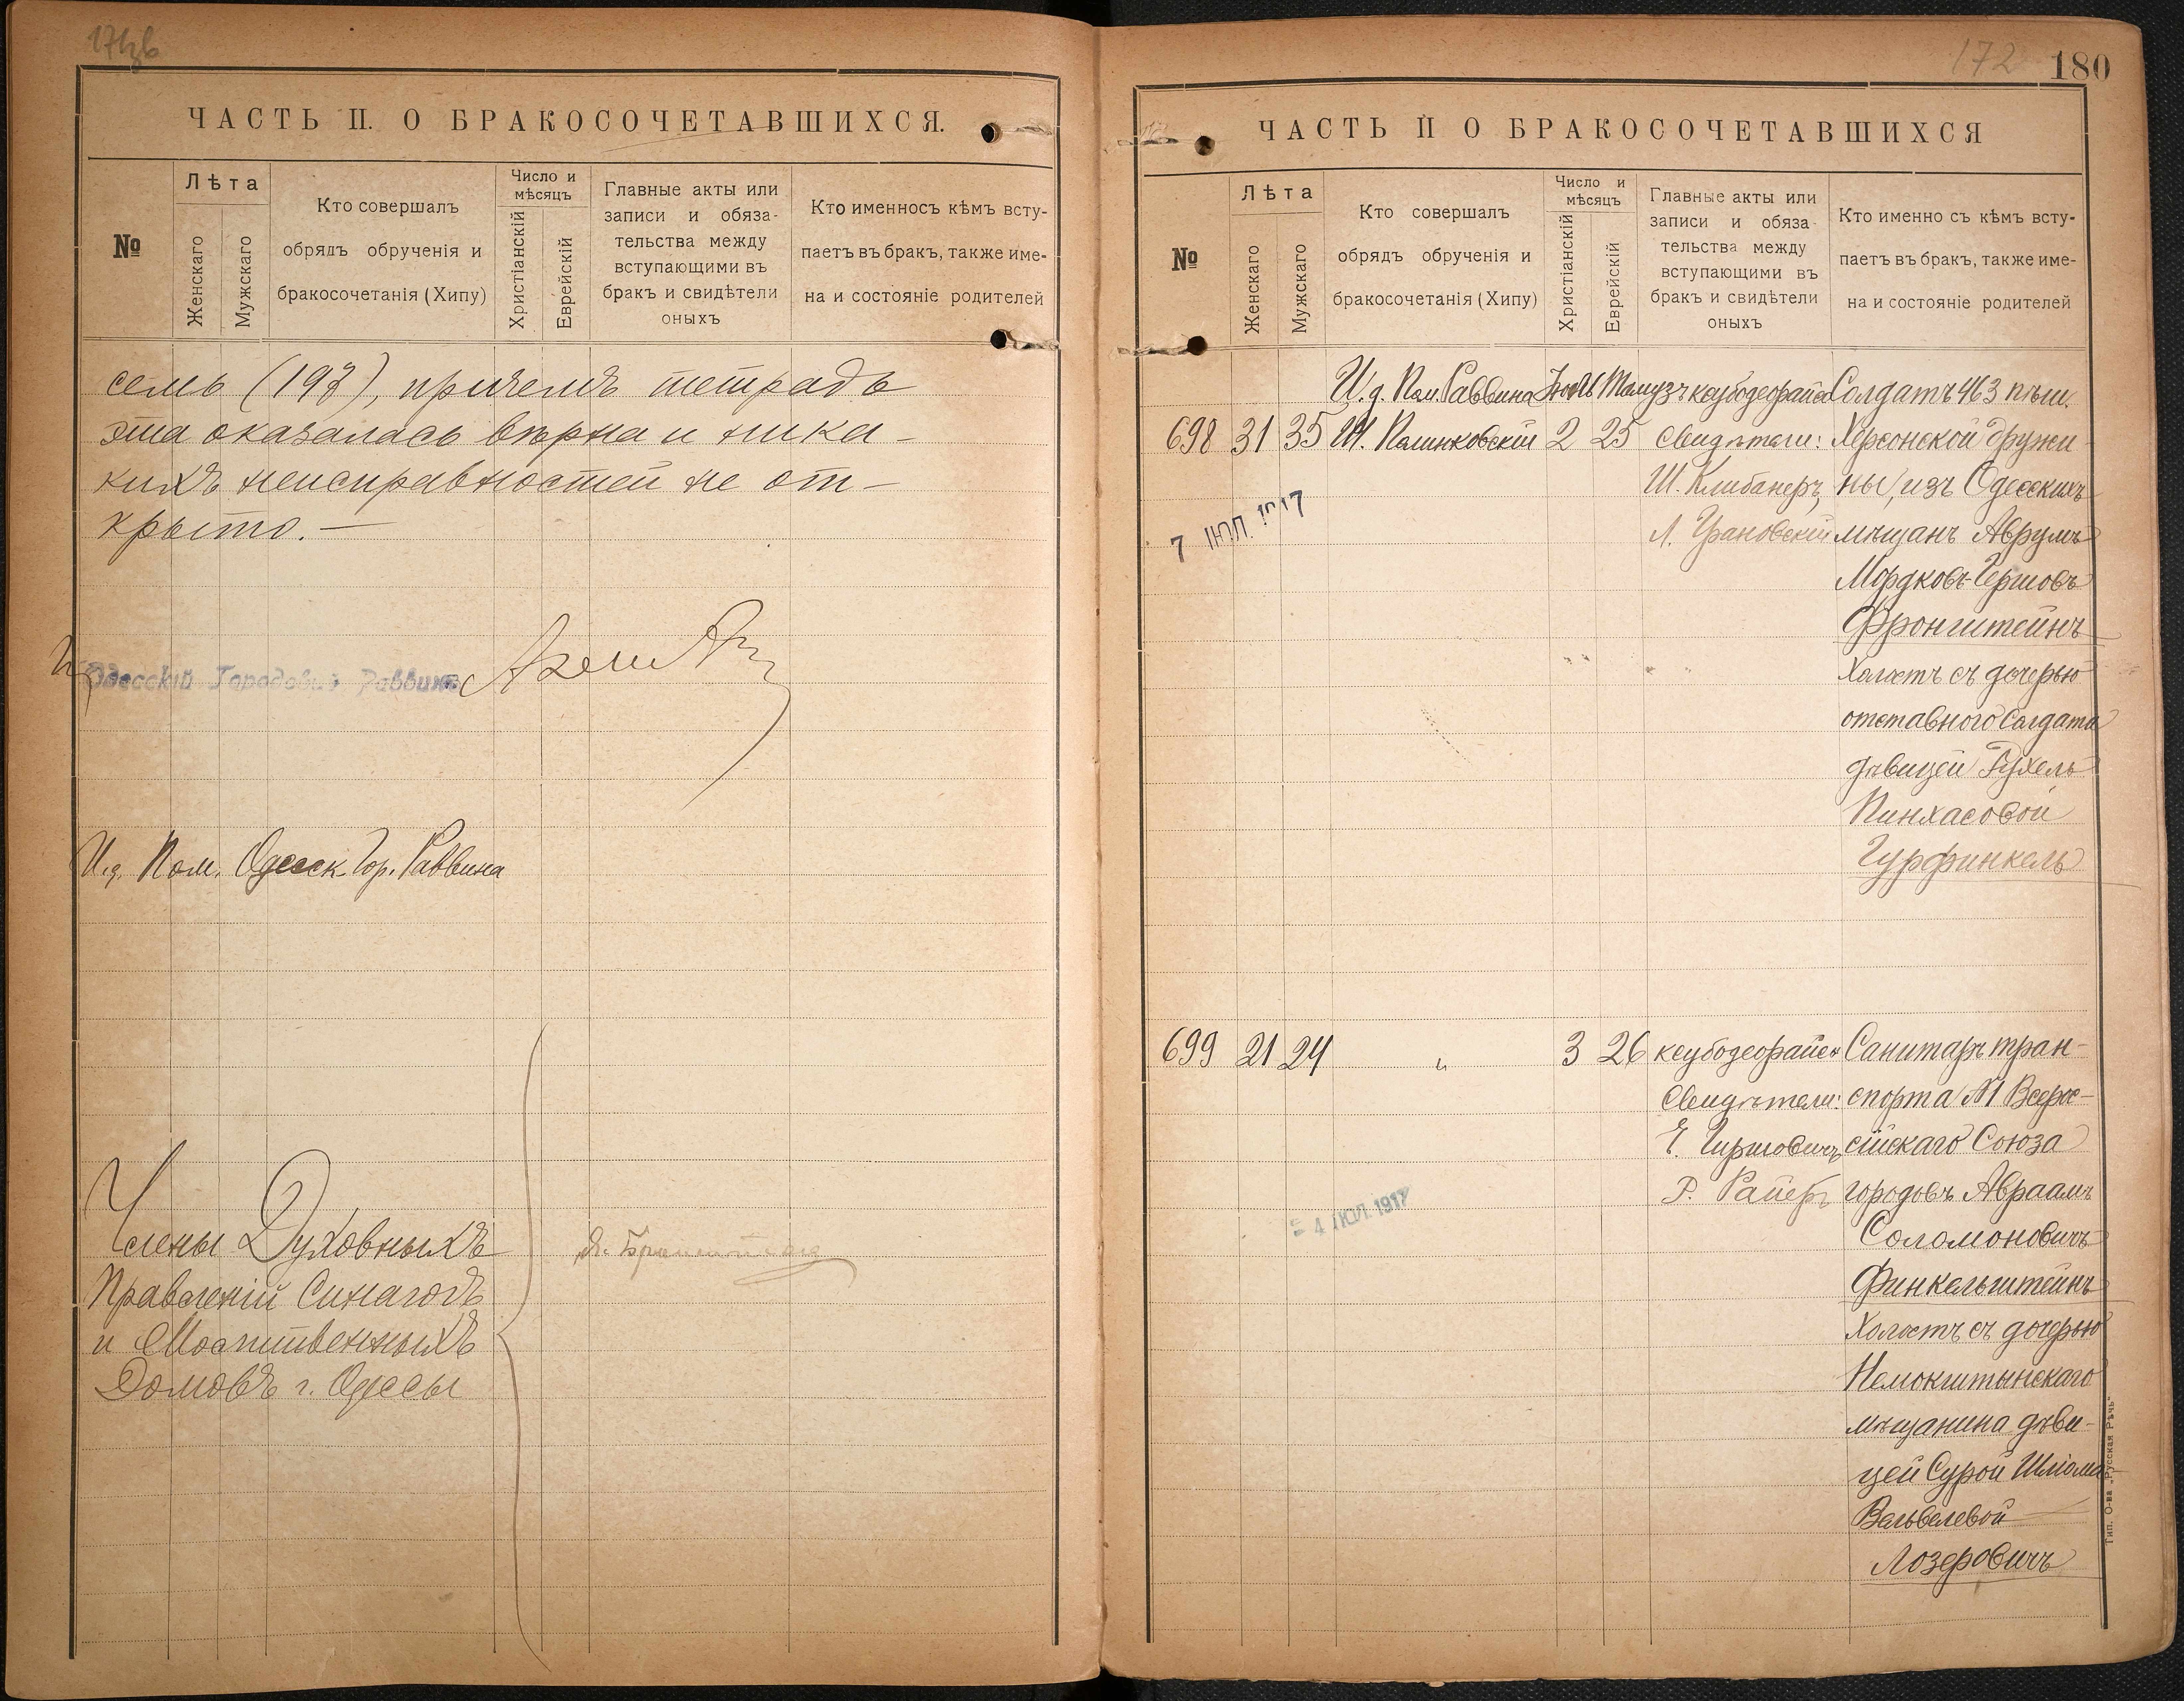 ЧАСТЬ II. О БРАКОСОЧЕТАВШИХСЯ.
№
Лѣта
Женскаго
Мужскаго
Кто совершалъ
обрядъ обрученія и
бракосочетанія (Хипу)
Число и
мѣсяцъ
Христіанскій
Еврейскій
Главные акты или
записи и обяза-
тельства между
вступающими въ
бракъ и свидѣтели
оныхъ
Кто именносъ кѣмъ всту-
паетъ въ бракъ, также име-
на и состояніе родителей
семь (197), причемъ тетрадь
эта оказалась вѣрна и ника-
кихъ неисправностей не от-
крыто. —
Одесскій Городовой Раввинъ
И.д. Пом. Одесск. Гор. Раввина
Члены Духовныхъ
Правленій Синагогъ
и Молитвенныхъ
Домовъ г. Одессы
172
180
ЧАСТЬ II О БРАКОСОЧЕТАВШИХСЯ
№
Лѣта
Женскаго
Мужскаго
Кто совершалъ
обрядъ обрученія и
бракосочетанія (Хипу)
Число и
мѣсяцъ
Христіанскій
Еврейскій
Главные акты или
записи и обяза-
тельства между
вступающими въ
бракъ и свидѣтели
оныхъ
Кто именно съ кѣмъ всту-
паетъ въ бракъ, также име-
на и состояніе родителей
И.д. Пом. Раввина Іюль Тамузъ кеубодеорайсо Солдатъ 463 пѣш.
698 31 35 М. Полинковскій 2 25 Свидѣтели: Херсонской дружи-
Ш. Клибанеръ, ны, изъ Одесскихъ
7 ІЮЛ. 1917
Л. Грановскій мѣщанъ Аврумъ
Мордковъ-Гершовъ
Фронштейнъ
Холостъ съ дочерью
отставного солдата
дѣвицей Рухель
Пинхасовой
Гурфинкель
699 21 24 " 3 26 кеубодеорайсо Санитаръ тран-
Свидѣтели: спорта №1 Всерос-
Е. Гиршовичъ сійскаго Союза
Р. Райеръ городовъ Авраамъ
4 ІЮЛ. 1917
Соломоновичъ
Финкельштейнъ
Холостъ съ дочерью
Немокштынскаго
мѣщанина дѣви-
цей Сурой Шліома
Вельвелевой
Лозеровичъ
Тип. О-ва „Русская Рѣчь"